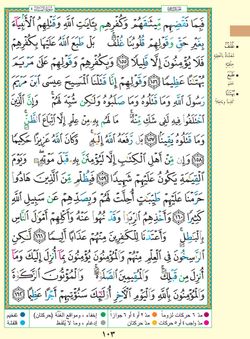 فَبِمَا نَقْضِهِم مِّيثَاقَهُمْ وَكُفْرِهِم بِـَٔايَٰتِ ٱللَّهِ وَقَتْلِهِمُ ٱلْأَنۢبِيَآءَ
بِغَيْرِ حَقٍّ وَقَوْلِهِمْ قُلُوبُنَا غُلْفٌۢ بَلْ طَبَعَ ٱللَّهُ عَلَيْهَا بِكُفْرِهِمْ
فَلَا يُؤْمِنُونَ إِلَّا قَلِيلًا ١٥٥ وَبِكُفْرِهِمْ وَقَوْلِهِمْ عَلَىٰ مَرْيَمَ
بُهْتَٰنًا عَظِيمًا ١٥٦ وَقَوْلِهِمْ إِنَّا قَتَلْنَا ٱلْمَسِيحَ عِيسَى ٱبْنَ مَرْيَمَ
رَسُولَ ٱللَّهِ وَمَا قَتَلُوهُ وَمَا صَلَبُوهُ وَلَٰكِن شُبِّهَ لَهُمْ وَإِنَّ
ٱلَّذِينَ ٱخْتَلَفُوا۟ فِيهِ لَفِى شَكٍّ مِّنْهُ مَا لَهُم بِهِۦ مِنْ عِلْمٍ إِلَّا ٱتِّبَاعَ ٱلظَّنِّ
وَمَا قَتَلُوهُ يَقِينًۢا ١٥٧ بَل رَّفَعَهُ ٱللَّهُ إِلَيْهِ وَكَانَ ٱللَّهُ عَزِيزًا حَكِيمًا
١٥٨ وَإِن مِّنْ أَهْلِ ٱلْكِتَٰبِ إِلَّا لَيُؤْمِنَنَّ بِهِۦ قَبْلَ مَوْتِهِۦ وَيَوْمَ
ٱلْقِيَٰمَةِ يَكُونُ عَلَيْهِمْ شَهِيدًا ١٥٩ فَبِظُلْمٍ مِّنَ ٱلَّذِينَ هَادُوا۟
حَرَّمْنَا عَلَيْهِمْ طَيِّبَٰتٍ أُحِلَّتْ لَهُمْ وَبِصَدِّهِمْ عَن سَبِيلِ ٱللَّهِ
كَثِيرًا ١٦٠ وَأَخْذِهِمُ ٱلرِّبَوٰا۟ وَقَدْ نُهُوا۟ عَنْهُ وَأَكْلِهِمْ أَمْوَٰلَ ٱلنَّاسِ
بِٱلْبَٰطِلِ وَأَعْتَدْنَا لِلْكَٰفِرِينَ مِنْهُمْ عَذَابًا أَلِيمًا ١٦١ لَّٰكِنِ
ٱلرَّٰسِخُونَ فِى ٱلْعِلْمِ مِنْهُمْ وَٱلْمُؤْمِنُونَ يُؤْمِنُونَ بِمَآ أُنزِلَ إِلَيْكَ وَمَآ
أُنزِلَ مِن قَبْلِكَ وَٱلْمُقِيمِينَ ٱلصَّلَوٰةَ وَٱلْمُؤْتُونَ ٱلزَّكَوٰةَ
وَٱلْمُؤْمِنُونَ بِٱللَّهِ وَٱلْيَوْمِ ٱلْـَٔاخِرِ أُو۟لَٰٓئِكَ سَنُؤْتِيهِمْ أَجْرًا عَظِيمًا ١٦٢
١٠٣